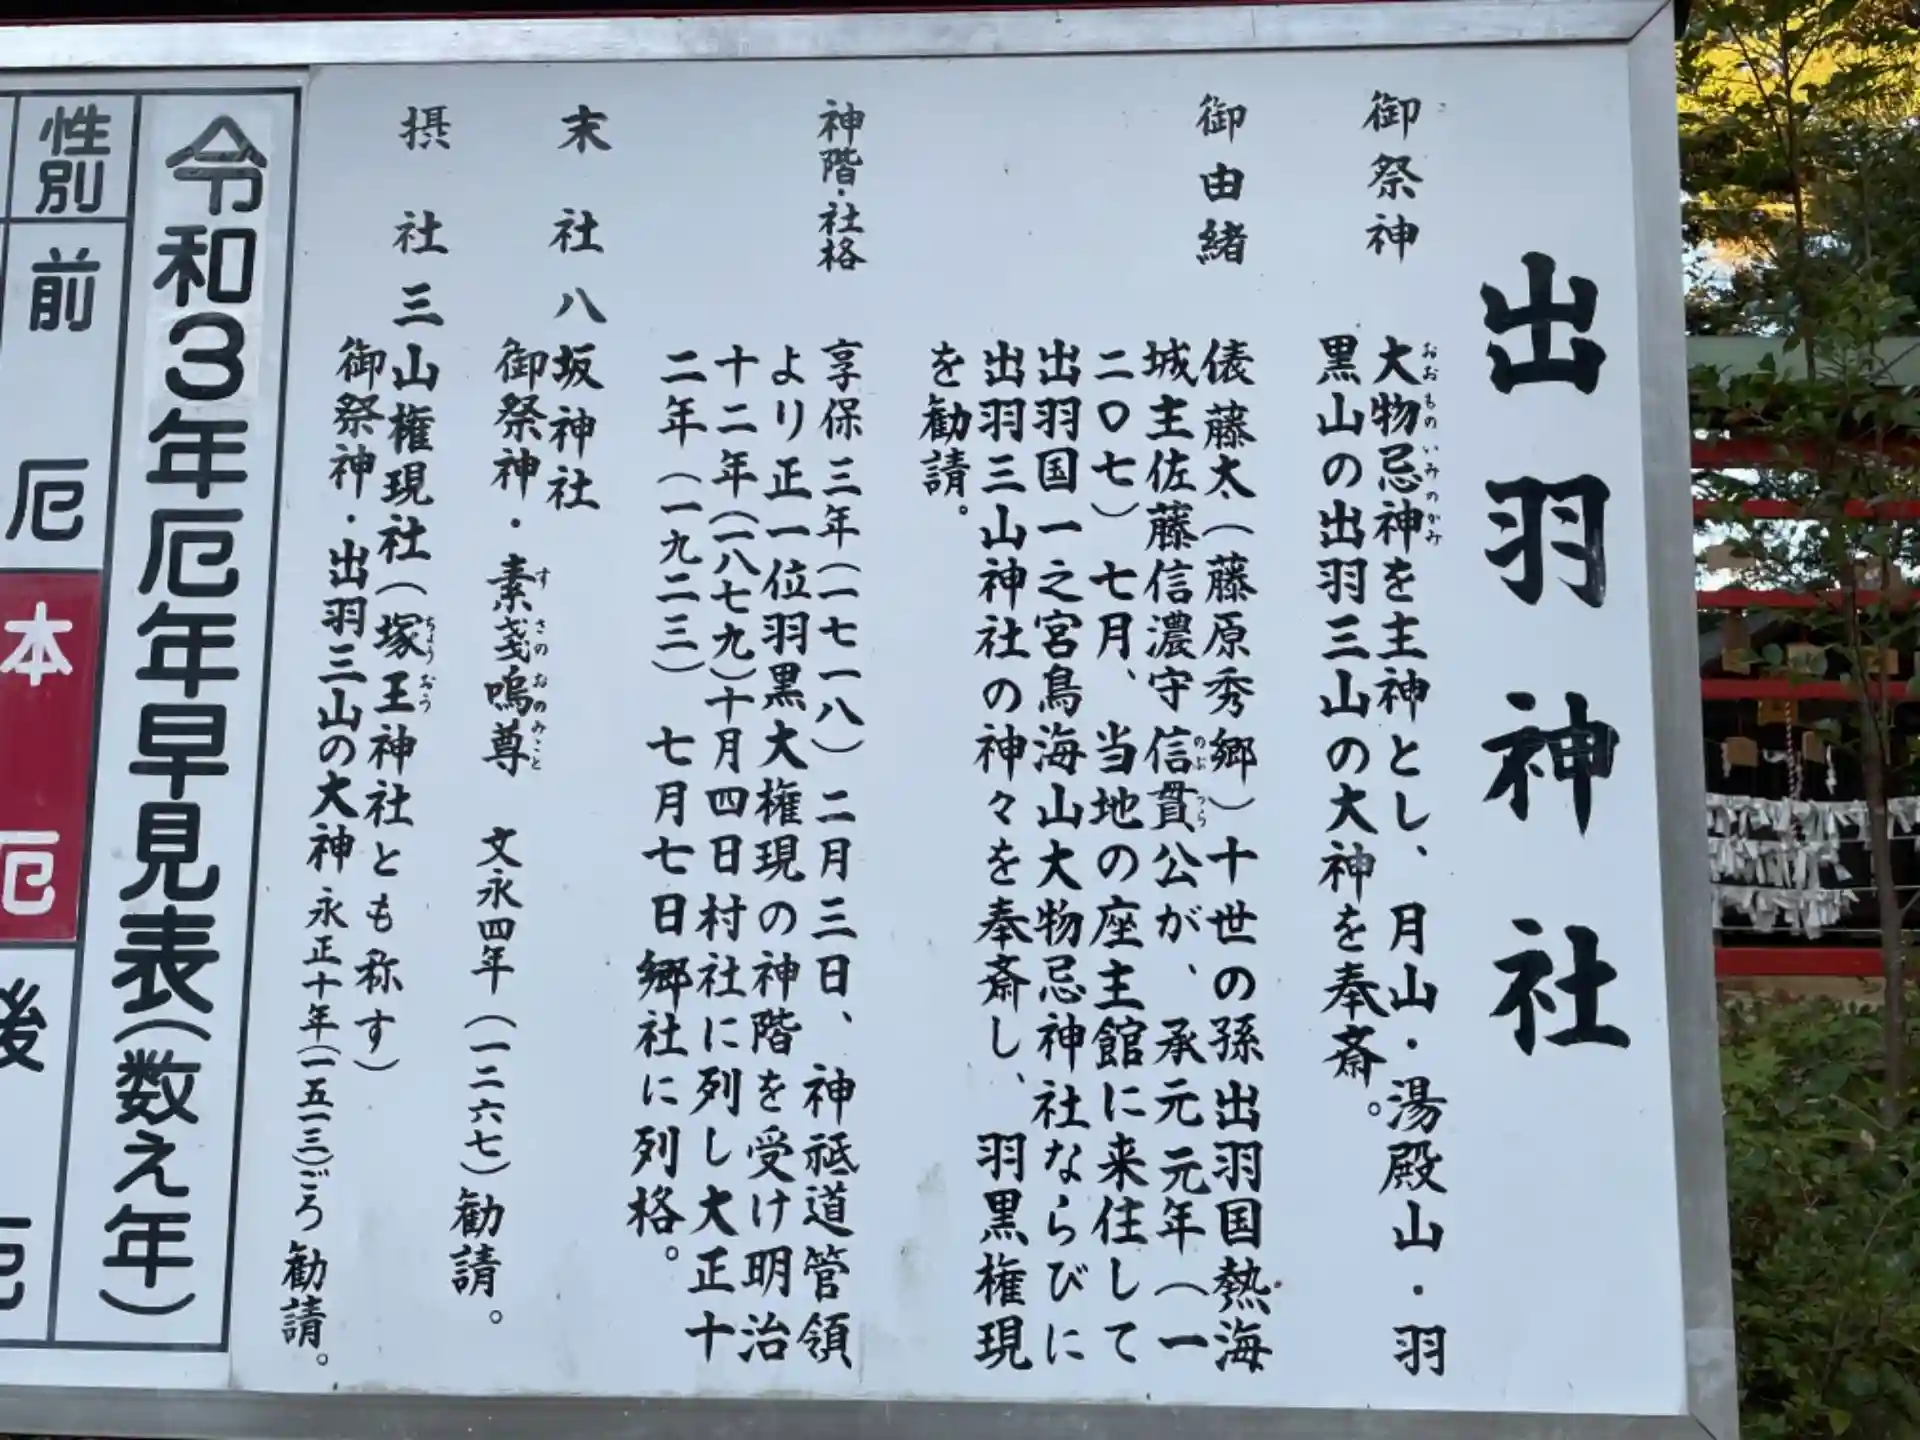 出羽神社
御祭神
大物忌神を主神とし、月山・湯殿山・羽
おおものいみのかみ
黒山の出羽三山の大神を奉斎。
御由緒
俵藤太(藤原秀郷)十世の孫出羽国熱海
城主佐藤信濃守信貫公が、承元元年(一
のぶつら
二〇七)七月、当地の座主館に来住して
出羽国一之宮鳥海山大物忌神社ならびに
出羽三山神社の神々を奉斎し、羽黒権現
を勧請。
神階・社格
享保三年(一七一八)二月三日、神祗道管領
より正一位羽黒大権現の神階を受け明治
十二年(一八七九)十月四日村社に列し大正十
二年(一九二三)七月七日郷社に列格。
末社八坂神社
御祭神・素戔嗚尊 文永四年(一二六七)勧請。
すさのおのみこと
摂社三山権現社(塚王神社とも称す)
ちょうおう
御祭神・出羽三山の大神 永正十年(一五一三)ごろ勧請。
令和3年厄年早見表(数え年)
性別
前厄
本厄
後厄